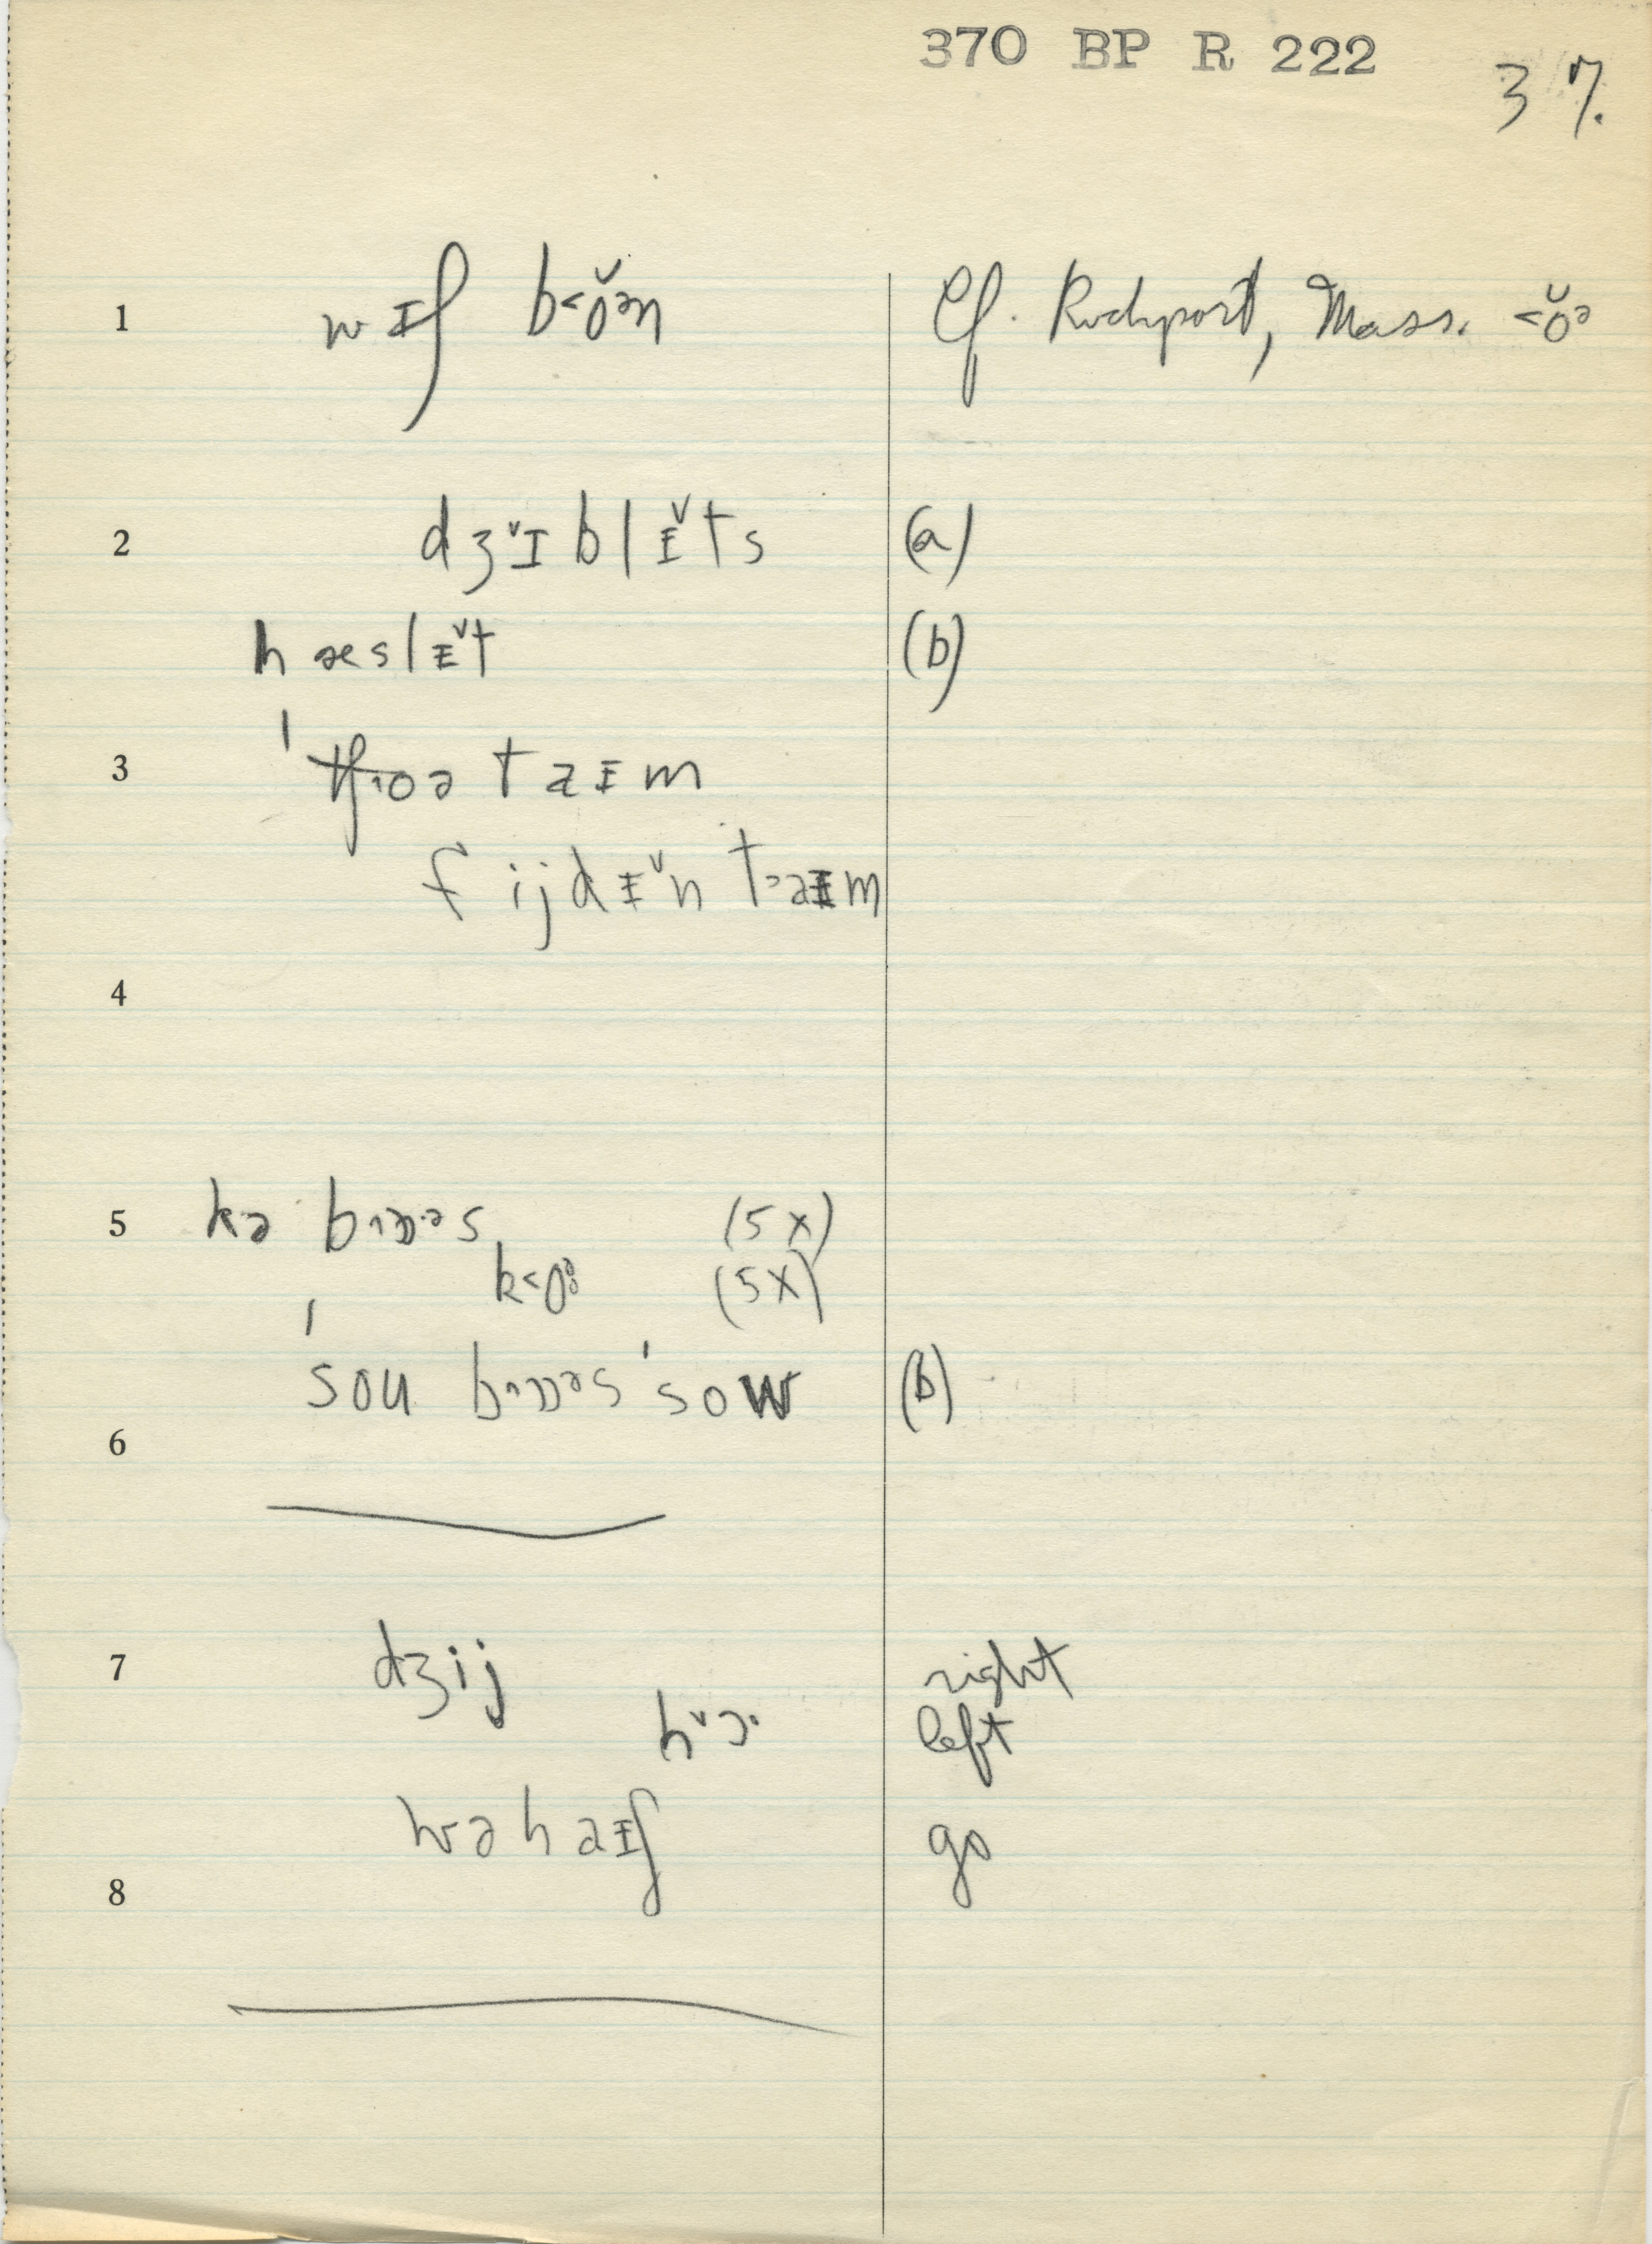 370 BP R 222
37.
1 wɪʃ b<ŏən Cf. Rockport, Mass. <ŏə
2 dʒˇɪblɪ̌ts (a)
hæslɪ̌t (b)
3 'tʃoə taɪm
fijdɪ̌n t>aɪm
4
5 kə bɒəs (5x)
k<o: (5x)
'sou bɒəs 'sow (b)
6
7 dʒij right
hˇɔ· left
wəhaɪʃ go
8